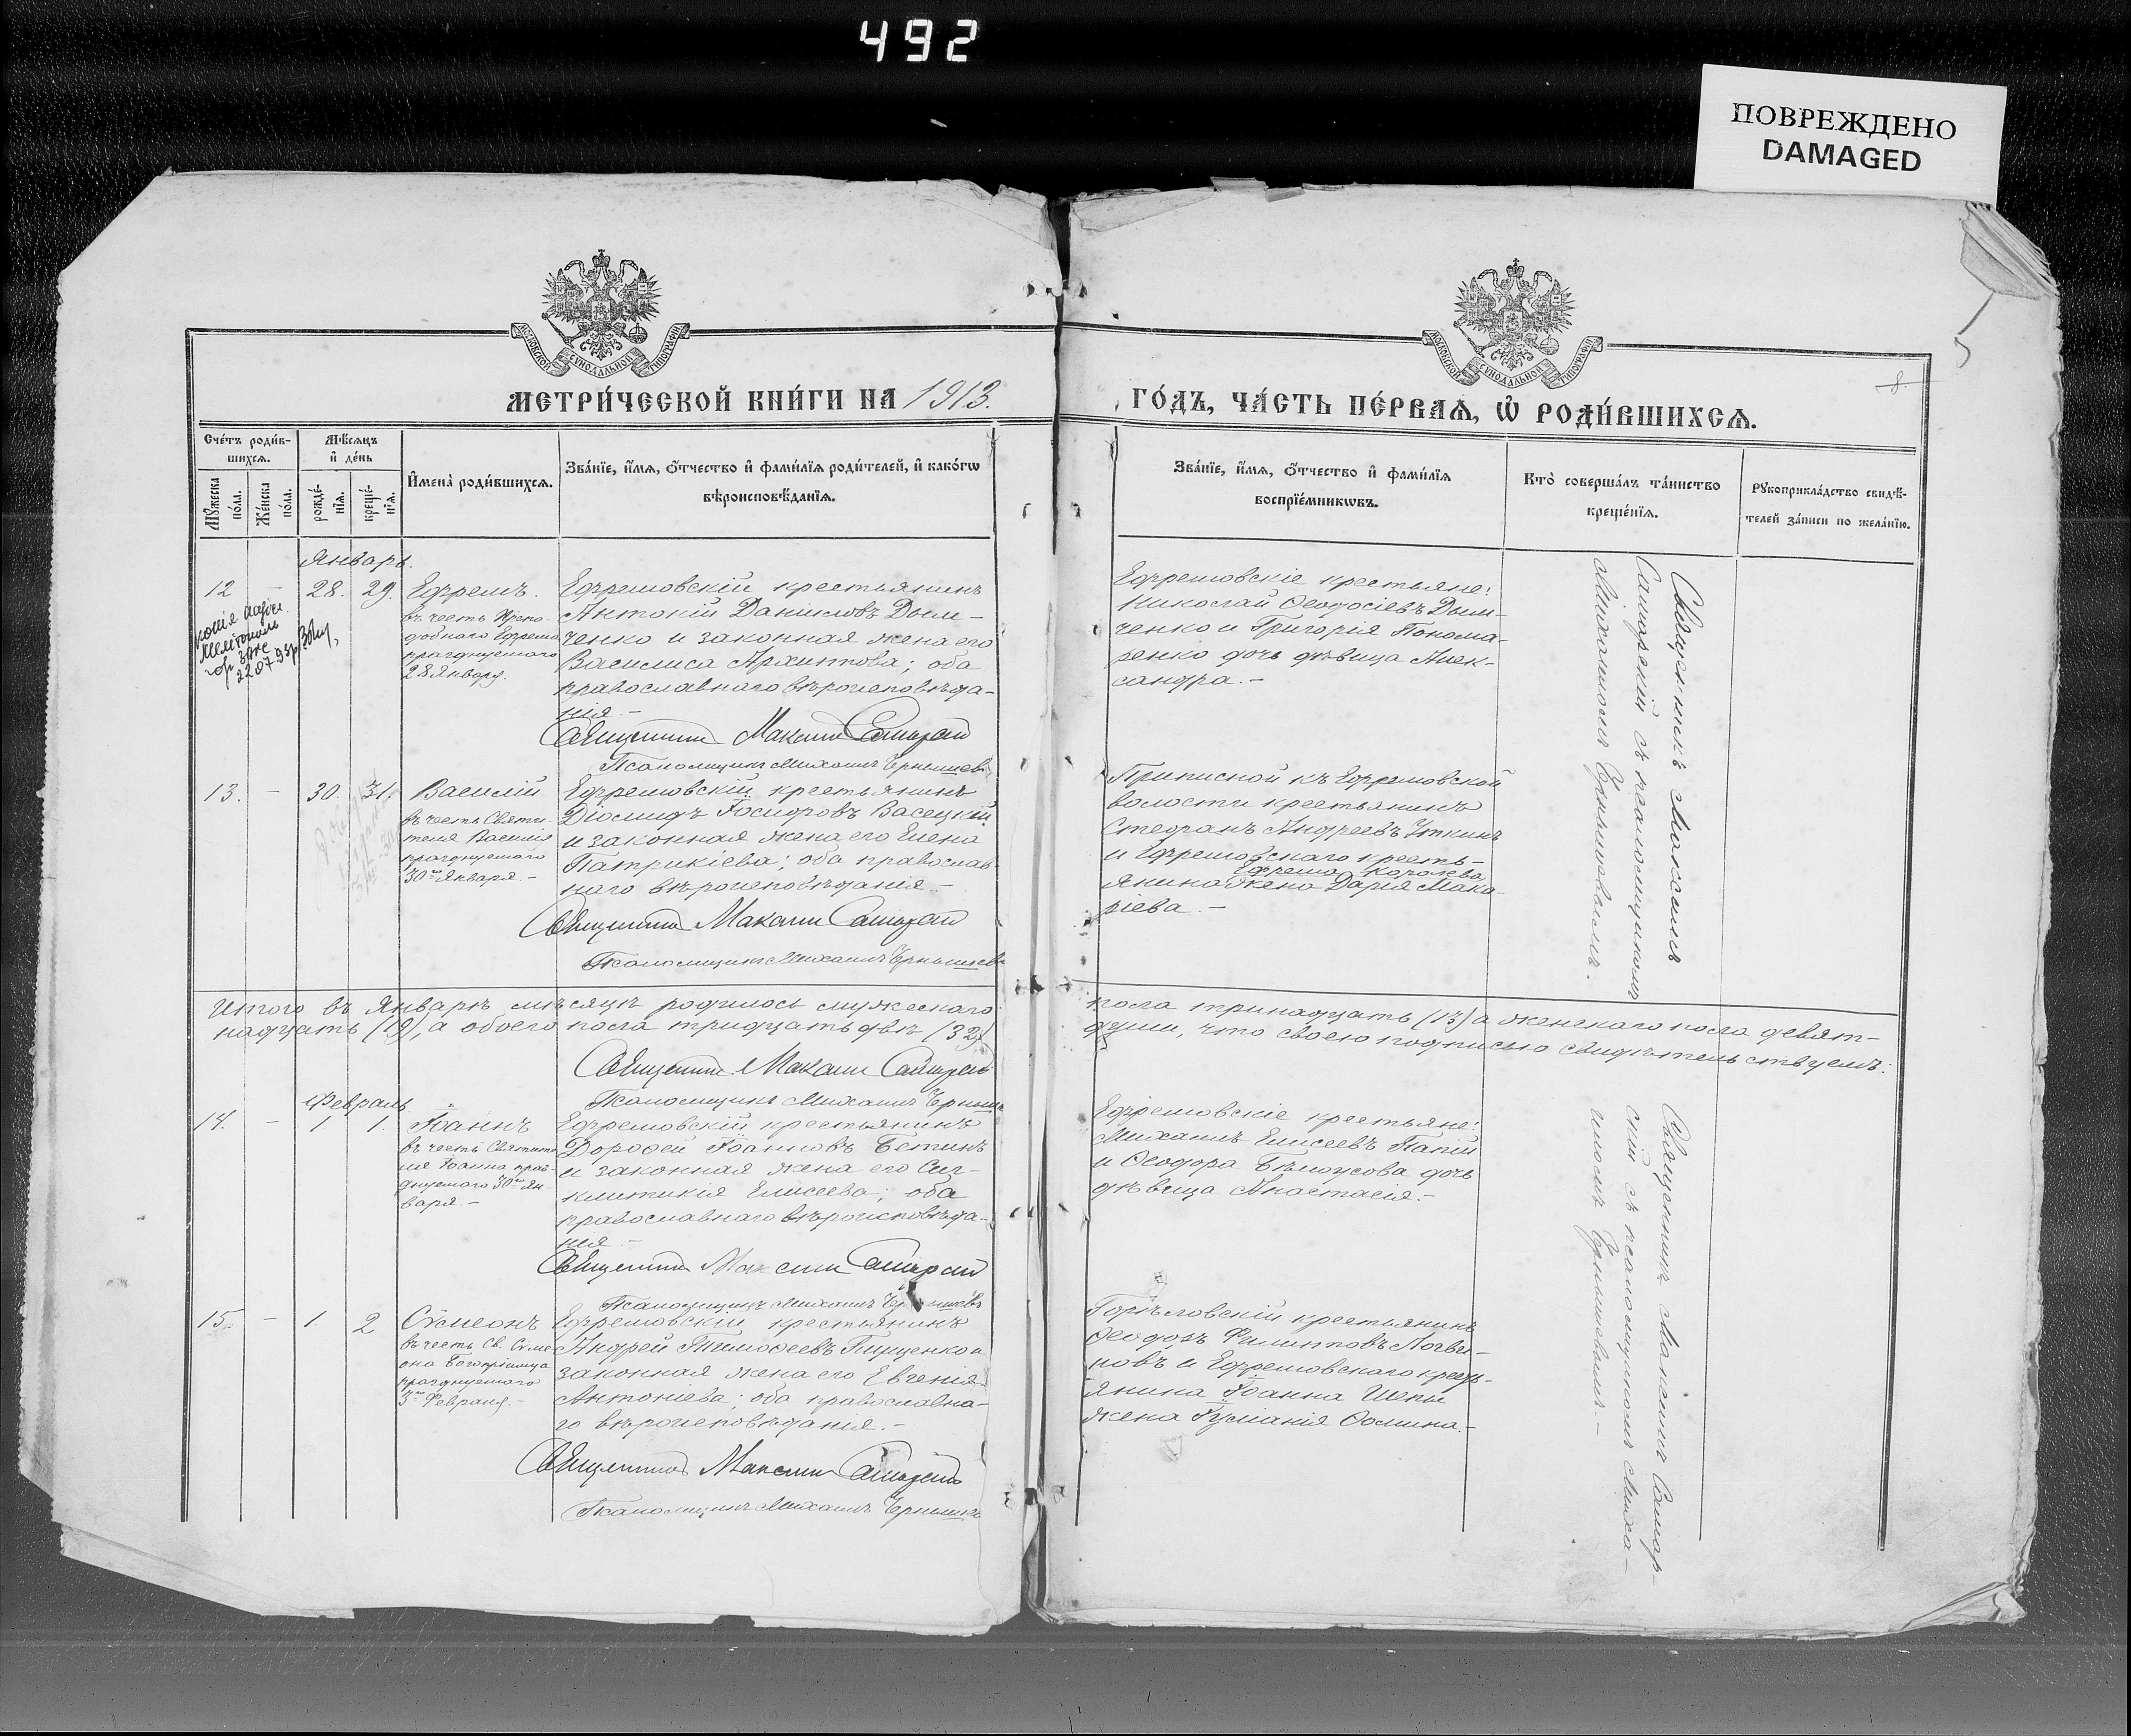 492
ПОВРЕЖДЕНО
DAMAGED
МОСКОВСКОЙ СѴНОДАЛЬНОЙ ТИПОГРАФІИ
МОСКОВСКОЙ СѴНОДАЛЬНОЙ ТИПОГРАФІИ
5
8.
МЕТРИ́ЧЕСКОЙ КНИ́ГИ НА 1913.
ГО́ДЪ, ЧА́СТЬ ПЕ́РВАѦ, Ѡ҆ РОДИ́ВШИХСѦ.
Сче́тъ роди́в-
шихсѧ.
Мѣ́сѧцъ
и҆ де́нь
Мꙋ́жеска
по́ла.
Же́нска
по́ла.
рожде́-
нїѧ.
креще́-
нїѧ.
И҆мена̀ роди́вшихсѧ.
Зва́нїе, и҆́мѧ, ѻ҆́тчество и҆ фами́лїѧ роди́телей, и҆ како́гѡ
вѣроисповѣ́данїѧ.
Зва́нїе, и҆́мѧ, ѻ҆́тчество и҆ фами́лїѧ
воспрїе́мникѡвъ.
Кто̀ соверша́лъ та́инство
креще́нїѧ.
Рꙋкоприкла́дство свидѣ́-
телей за́писи по жела́нїю.
Январь.
12 – 28. 29. Ефремъ.
въ честь Препо-
добнаго Ефрема
празднуемаго
28 Января.
Мелитополь
2207
Ефремовскій крестьянинъ
Антоній Даніиловъ Дым-
ченко и законная жена его
Василиса Архиппова; оба
православнаго вѣроисповѣда-
нія. –
Священникъ Максимъ Самарскій
Псаломщикъ Михаилъ Чернышевъ
Ефремовскіе крестьяне:
Николай Ѳеодосіевъ Дым-
ченко и Григорія Понома-
ренко дочь дѣвица Алек-
сандра. –
Священникъ Максимъ
Самарскій съ псаломщикомъ
Михаиломъ Чернышевымъ.
13. – 30. 31. Василій
въ честь Святи-
теля Василія
празднуемаго
30го Января. –
Ефремовскій крестьянинъ
Діомидъ Іосифовъ Васецкій
и законная жена его Елена
Патрикіева; оба православ-
наго вѣроисповѣданія. –
Священникъ Максимъ Самарскій
Псаломщикъ Михаилъ Чернышевъ
Приписной къ Ефремовской
волости крестьянинъ
Стефанъ Андреевъ Уткинъ
и Ефремовскаго кресть-
Ефрема Королева
янина жена Дарія Мака-
ріева. –
Итого въ Январѣ мѣсяцѣ родилось мужескаго пола тринадцать (13) а женскаго пола девят-
надцать (19), а обоего пола тридцать двѣ (32) души, что своею подписью свидѣтельствуемъ:
Священникъ Максимъ Самарскій
Псаломщикъ Михаилъ Чернышевъ
Февраль.
14. – 1 1. Іоаннъ
въ честь Святите
ля Іоанна праз-
днуемаго 30го Ян-
варя. –
Ефремовскій крестьянинъ
Дороѳей Іоанновъ Бетинъ
и законная жена его Син-
клитикія Елисеева; оба
православнаго вѣроисповѣда-
нія –
Священникъ Максимъ Самарскій
Псаломщикъ Михаилъ Чернышевъ
Ефремовскіе крестьяне:
Михаилъ Елисеевъ Папій
и Ѳеодора Бѣлоусова дочь
дѣвица Анастасія. –
Священникъ Максимъ Самар-
скій съ псаломщикомъ Миха-
иломъ Чернышевымъ. –
15. – 1. 2 Сѵмеонъ
въ честь Св. Сѵме
она Богопріимца
празднуемаго
3го Февраля. –
Ефремовскій крестьянинъ
Андрей Тимоѳеевъ Пищенко и
законная жена его Евгенія
Антоніева; оба православна-
го вѣроисповѣданія. –
Священникъ Максимъ Самарскій
Псаломщикъ Михаилъ Чернышевъ
Горѣловскій крестьянинъ
Ѳеодоръ Филипповъ Логви-
новъ и Ефремовскаго крест-
янина Іоанна Шепы
жена Іуліанія Ѳомина. –